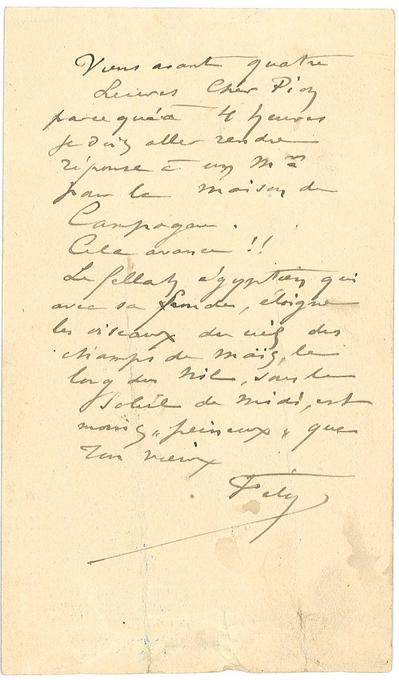 Viens avant quatre
heures Cher Pion
parce qu'à 4 heures
je dois aller rendre
réponse à un Mr
pour la maison de
Campagne.
Cela avance !!
Le fellah égyptien qui
avec sa fronde, éloigne
les oiseaux du ciel des
champs de maïs, le
long du Nil, sous le
Soleil de Midi, est
moins "peineux" que
ton vieux
Fély